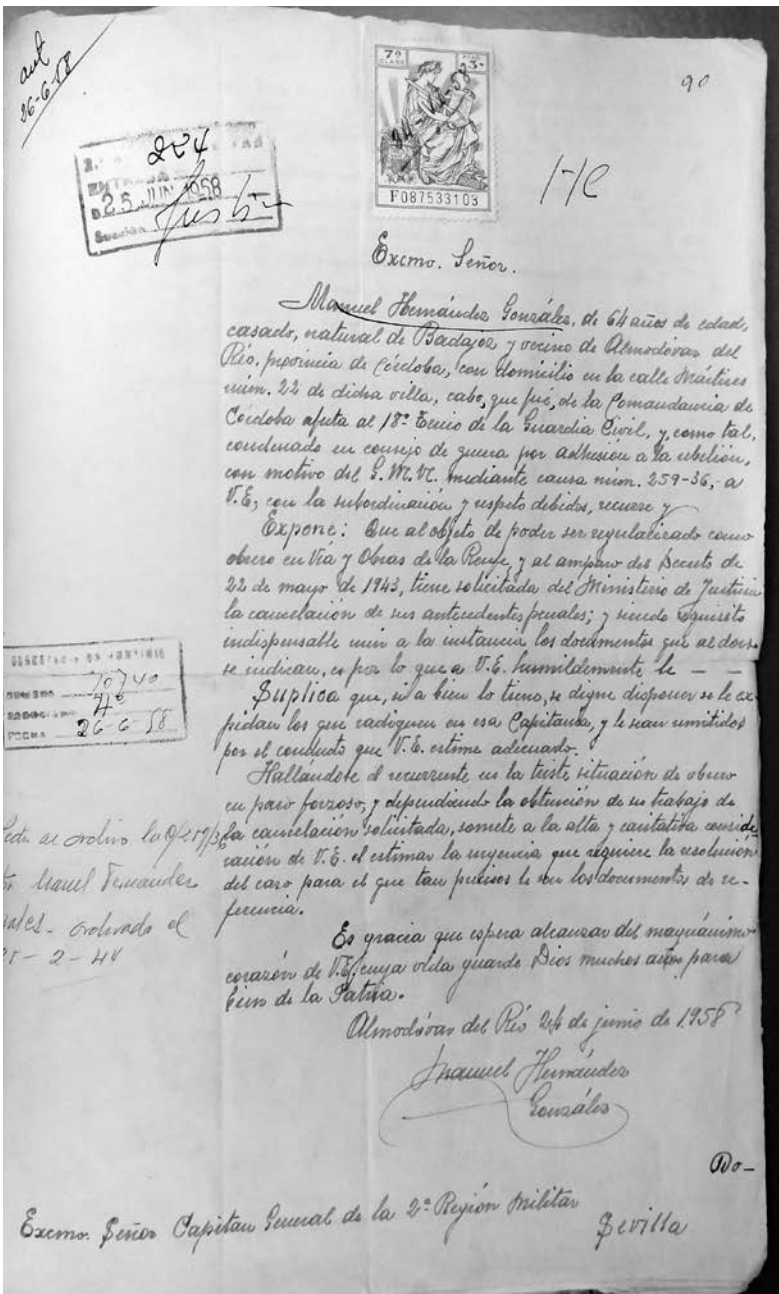 ant
26-6-58
90
7ª CLASE
PTAS 3
F087533103
224
25 JUN 1958
Sección Justicia
Excmo. Señor.
Manuel Hernández González, de 64 años de edad,
casado, natural de Badajoz y vecino de Almodóvar del
Río, provincia de Córdoba, con domicilio en la calle Mártires
núm. 22 de dicha villa, cabo, que fué, de la Comandancia de
Córdoba afecta al 18º Tercio de la Guardia Civil, y, como tal,
condenado en consejo de guerra por adhesión a la rebelión,
con motivo del G. M. N. mediante causa núm. 259-36, a
V.E., con la subordinación y respeto debidos, recurre y
Expone: Que al objeto de poder ser regularizado como
obrero en Vía y Obras de la Renfe, y al amparo del Decreto de
22 de mayo de 1943, tiene solicitada del Ministerio de Justicia
la cancelación de sus antecedentes penales; y siendo requisito
indispensable unir a la instancia los documentos que al dorso
se indican, es por lo que a V.E. humildemente le — —
Suplica que, si a bien lo tiene, se digne disponer se le ex-
pidan los que radiquen en esa Capitanía, y le sean remitidos
por el conducto que V.E. estime adecuado.
Hallándose el recurrente en la triste situación de obrero
en paro forzoso, y dependiendo la obtención de su trabajo de
la cancelación solicitada, somete a la alta y caritativa conside-
ración de V.E. el estimar la urgencia que requiere la resolución
del caso para el que tan precisos le son los documentos de re-
ferencia.
Es gracia que espera alcanzar del magnánimo
corazón de V.E., cuya vida guarde Dios muchos años para
bien de la Patria.
Almodóvar del Río 24 de junio de 1958
Manuel Hernández
González
Do-
Excmo. Señor Capitan General de la 2ª Región Militar
Sevilla
70740
4º
FECHA 26-6-58
archivo la
Manuel Fernandez
archivado el
- 2 - 44